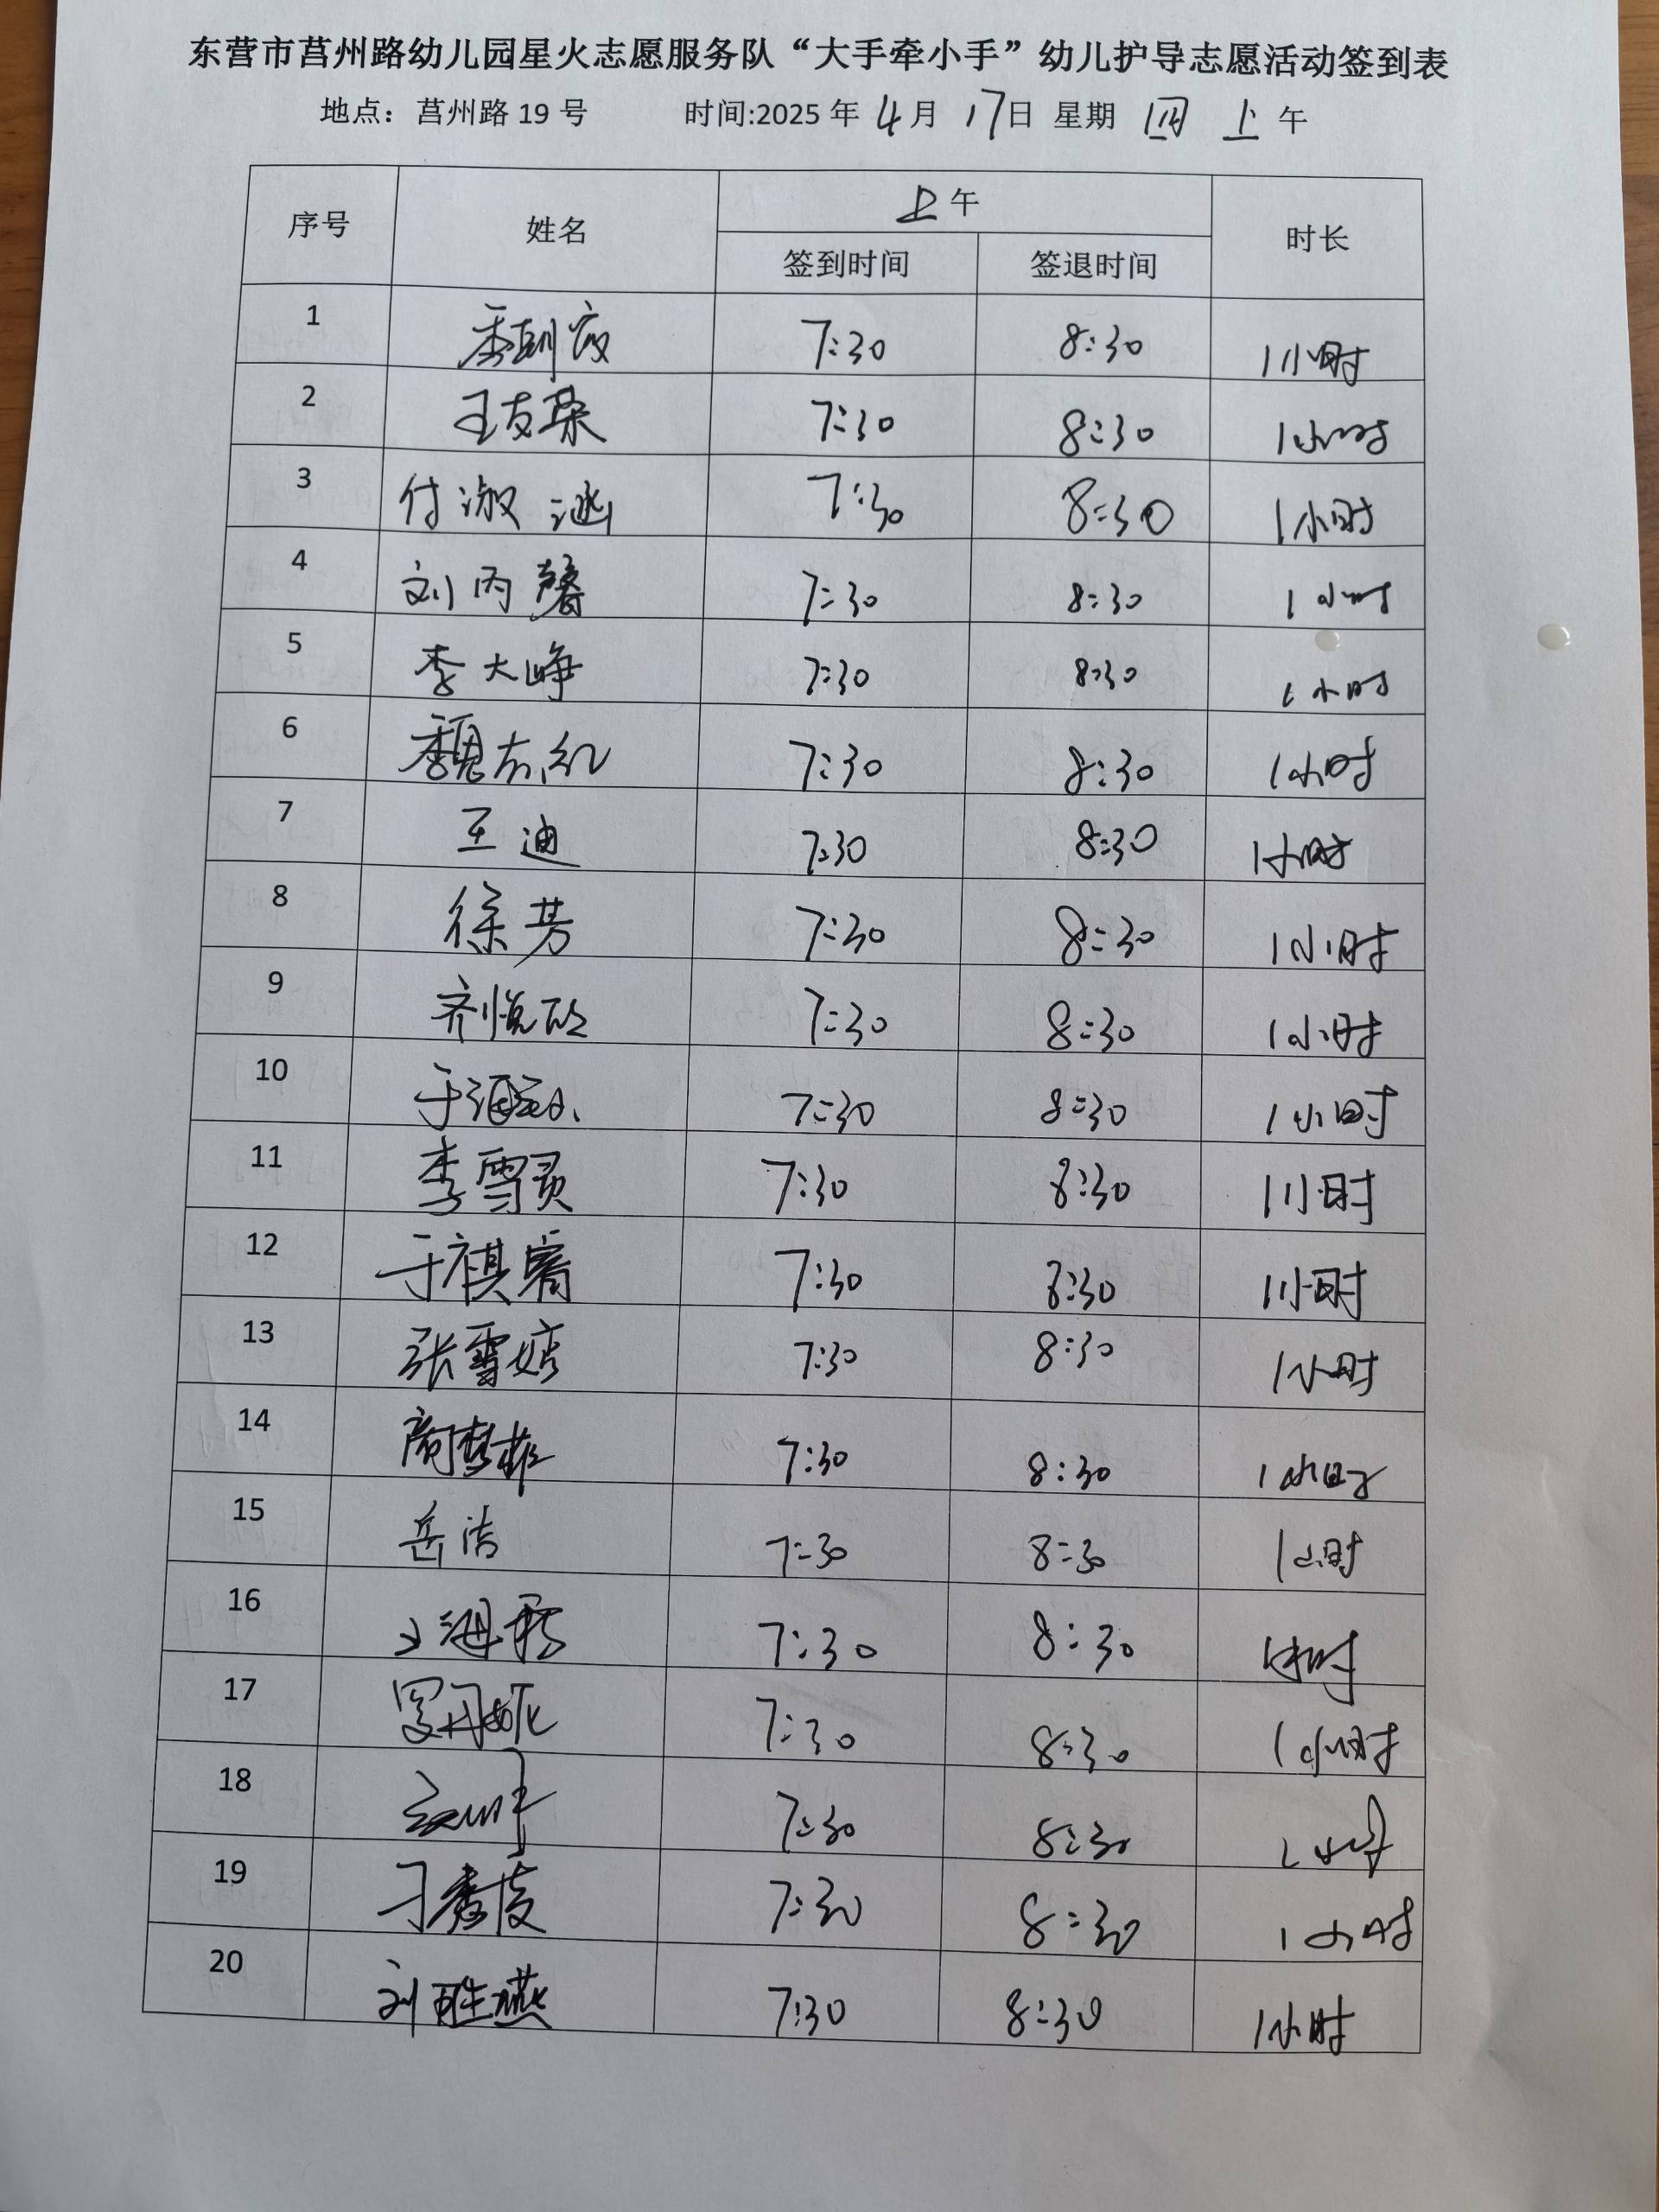 东营市莒州路幼儿园星火志愿服务队“大手牵小手”幼儿护导志愿活动签到表
地点：莒州路 19 号 时间:2025 年 4 月 17 日 星期 四 上 午
序号 姓名 上午 时长
签到时间 签退时间
1 7:30 8:30 1小时
2 王友荣 7:30 8:30 1小时
3 付淑 7:30 8:30 1小时
4 刘丙馨 7:30 8:30 1小时
5 李大峥 7:30 8:30 1小时
6 魏东红 7:30 8:30 1小时
7 王迪 7:30 8:30 1小时
8 徐芳 7:30 8:30 1小时
9 齐悦欣 7:30 8:30 1小时
10 于 7:30 8:30 1小时
11 李雪灵 7:30 8:30 1小时
12 于祺 7:30 8:30 1小时
13 张雪婷 7:30 8:30 1小时
14 7:30 8:30 1小时
15 岳洁 7:30 8:30 1小时
16 7:30 8:30 1小时
17 罗丹妮 7:30 8:30 1小时
18 7:30 8:30 1小时
19 7:30 8:30 1小时
20 刘胜燕 7:30 8:30 1小时